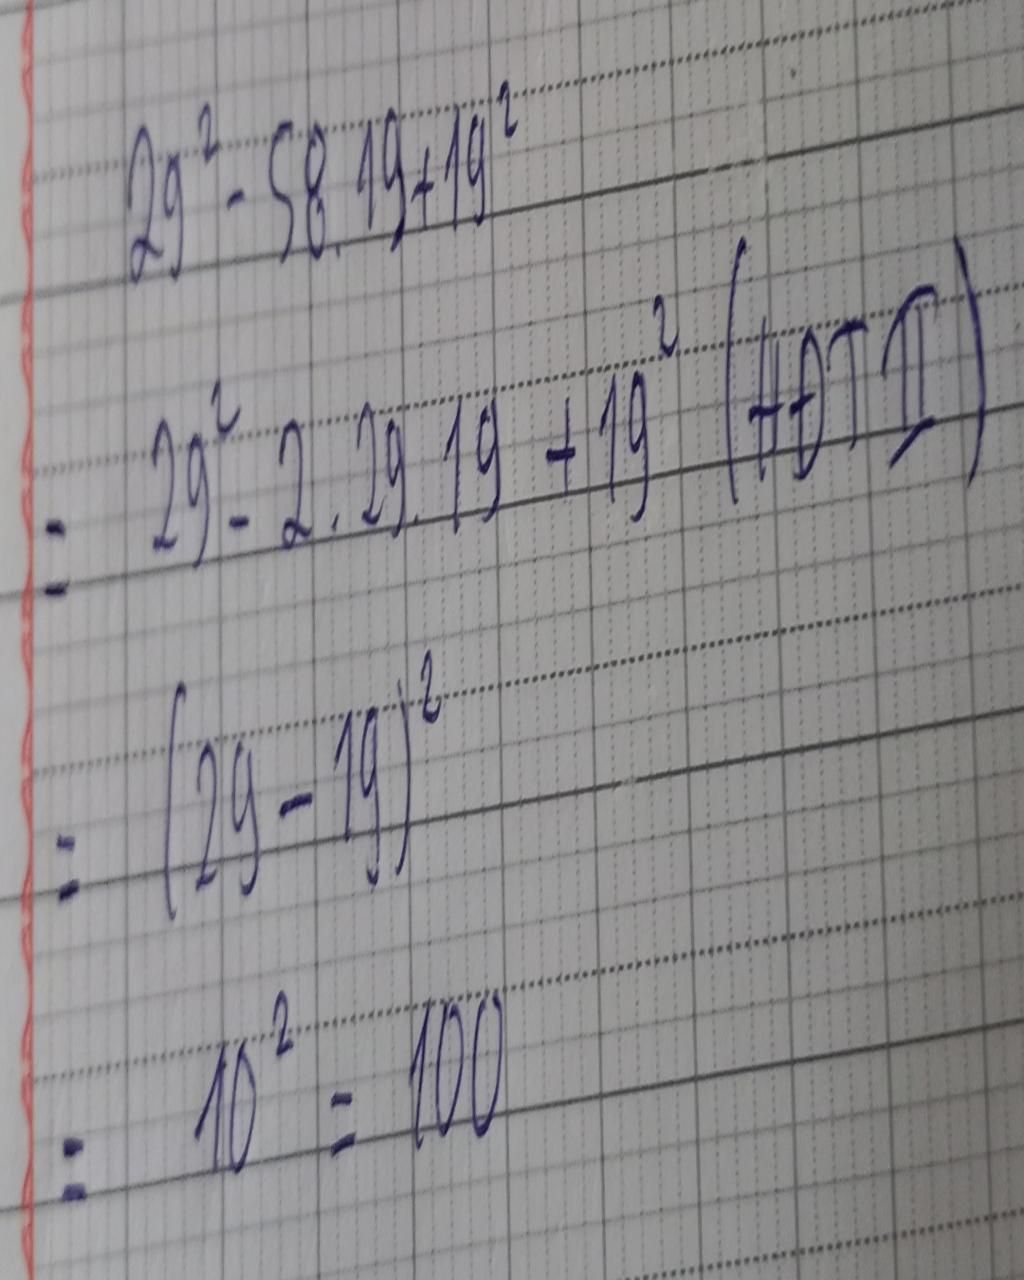 29² - 58.19+19²
= 29² - 2.29.19 + 19² (HĐT II)
= (29 - 19)²
= 10² = 100